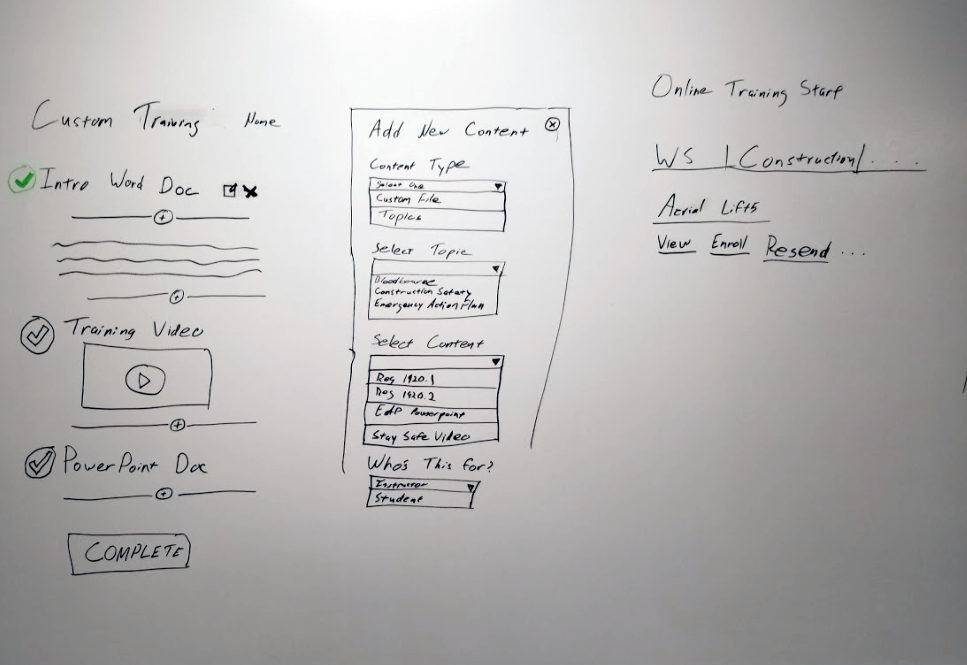 Custom Training Name
Intro Word Doc
Training Video
PowerPoint Doc
COMPLETE
Add New Content
Content Type
Select One
Custom File
Topics
Select Topic
Bloodbourne
Construction Safety
Emergency Action Plan
Select Content
Reg 1920.1
Reg 1920.2
EAP Powerpoint
Stay Safe Video
Who's This for?
Instructor
Student
Online Training Start
WS | Construction | ....
Aerial Lifts
View Enroll Resend ...